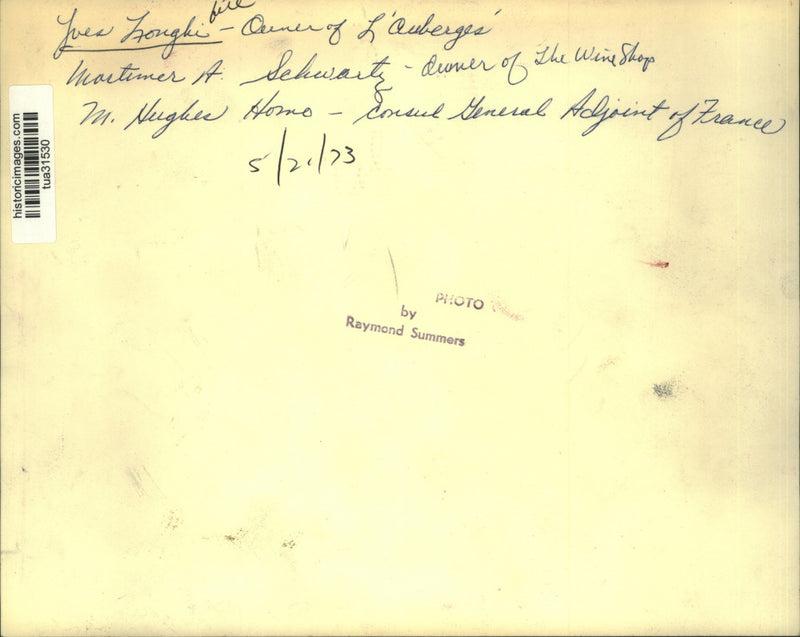 file
Yves Longhi - Owner of L'Auberges'
Mortimer A. Schwartz - Owner of The Wine Shop
M. Hughes Homo - Consul General Adjoint of France
5/21/73
historicimages.com
tua31530
PHOTO
by
Raymond Summers